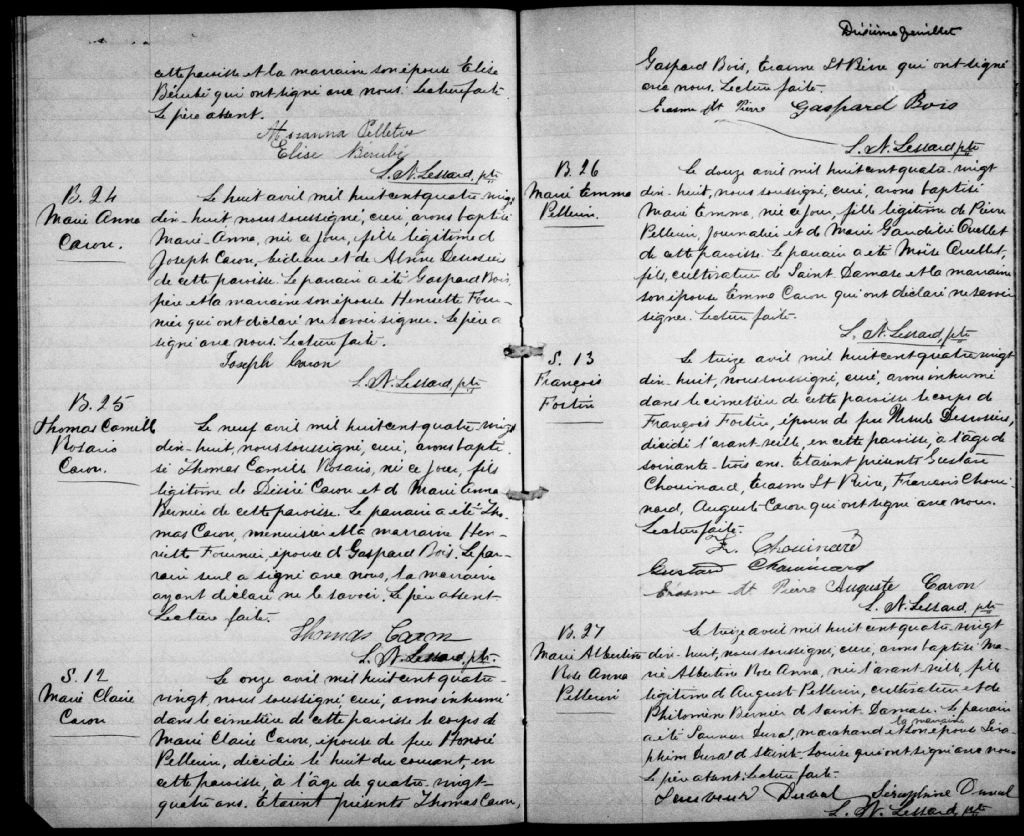 cette paroisse et la marraine son épouse Elise
Bérubé qui ont signé avec nous. Lecture faite.
Le père absent.
Rosanna Pelletier
Elise Bérubé
L. N. Lessard, ptre
B. 24
Marie Anna
Caron.
Le huit avril mil huit cent quatre-vingt
dix-huit, nous soussigné, curé, avons baptisé
Marie-Anna, née ce jour, fille légitime de
Joseph Caron, bedeau et de Desrosiers
de cette paroisse. Le parrain a été Gaspard Bois,
père et la marraine son épouse Henriette Four-
nier qui ont déclaré ne savoir signer. Le père a
signé avec nous. Lecture faite.
Joseph Caron
L. N. Lessard, ptre
B. 25
Thomas Camille
Rosario
Caron.
Le neuf avril mil huit cent quatre-vingt
dix-huit, nous soussigné, curé, avons bapti-
sé Thomas Camille Rosario, né ce jour, fils
légitime de Désiré Caron et de Marie Anna
Bernier de cette paroisse. Le parrain a été Tho-
mas Caron, menuisier et la marraine Hen-
riette Fournier, épouse de Gaspard Bois. Le par-
rain seul a signé avec nous, la marraine
ayant déclaré ne le savoir. Le père absent.
Lecture faite.
Thomas Caron
L. N. Lessard, ptre.
S. 12
Marie Claire
Caron
Le onze avril mil huit cent quatre-
vingt, nous soussigné curé, avons inhumé
dans le cimetière de cette paroisse le corps de
Marie Claire Caron, épouse de feu Honoré
Pelletier, décédée le huit du courant, en
cette paroisse, à l'âge de quatre-vingt-
quatre ans. Étaient présents Thomas Caron,
feuillet
Gaspard Bois, Erasme St Pierre qui ont signé
avec nous. Lecture faite.
Erasme St Pierre Gaspard Bois
L. N. Lessard, ptre
B. 26
Marie Emma
Pelletier.
Le douze avril mil huit cent quatre-vingt
dix-huit, nous soussigné, curé, avons baptisé
Marie Emma, née ce jour, fille légitime de Pierre
Pelletier, Journalier et de Marie Ouellet
de cette paroisse. Le parrain a été Moïse Ouellet,
fils, cultivateur de Saint Damase et la marraine
son épouse Emma Caron qui ont déclaré ne savoir
signer. Lecture faite.
L. N. Lessard, ptre
S. 13
François
Fortin
Le treize avril mil huit cent quatre-vingt
dix-huit, nous soussigné, curé, avons inhumé
dans le cimetière de cette paroisse le corps de
François Fortin, époux de feu Ursule Desrosiers,
décédé l'avant-veille, en cette paroisse, à l'âge de
soixante-trois ans. Etaient présents Gustave
Chouinard, Erasme St Pierre, François Choui-
nard, Auguste Caron qui ont signé avec nous.
Lecture faite.
F. Chouinard
Gustave Chouinard
Erasme St Pierre Auguste Caron
L. N. Lessard, ptre
B. 27
Marie Albertine
Rose Anna
Pelletier
Le treize avril mil huit cent quatre-vingt
dix-huit, nous soussigné, curé, avons baptisé Ma-
rie Albertine Rose Anna, née l'avant-veille, fille
légitime de August Pelletier, cultivateur et de
Philomène Bernier de Saint-Damase. Le parrain
a été Sauveur Duval, marchand et la marraine son épouse Séra-
phine Duval de Sainte-Louise qui ont signé avec nous.
Le père absent. Lecture faite.
Sauveur Duval Séraphine Duval
L. N. Lessard, ptre